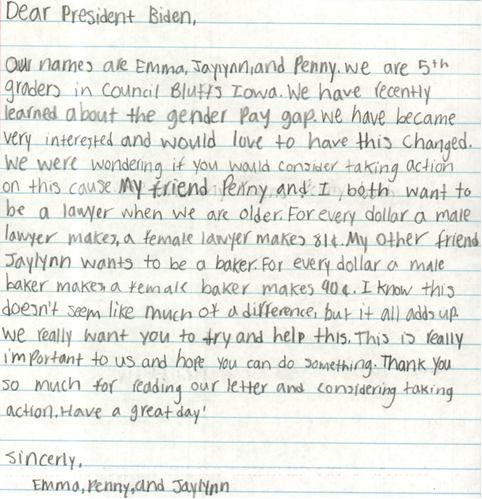 Dear President Biden,
Our names are Emma, Jaylynn, and Penny. we are 5th
graders in Council Bluffs Iowa. We have recently
learned about the gender Pay gap. we have became
very interested and would love to have this changed.
We were wondering if you would consider taking action
on this cause. My friend Penny and I, both want to
be a lawyer when we are older. For every dollar a male
lawyer makes, a female lawyer makes 81¢. My other friend
Jaylynn wants to be a baker. For every dollar a male
baker makes a female baker makes 90¢. I know this
doesn't seem like much of a difference, but it all adds up.
we really want you to try and help this. This is really
important to us and hope you can do something. Thank you
so much for reading our letter and considering taking
action. Have a great day!
Sincerly,
Emma, Penny, and Jaylynn